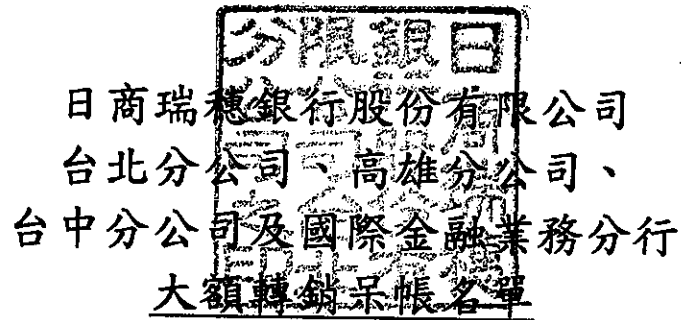 日商瑞穗銀行股份有限公司
台北分公司、高雄分公司、
台中分公司及國際金融業務分行
大額轉銷呆帳名單